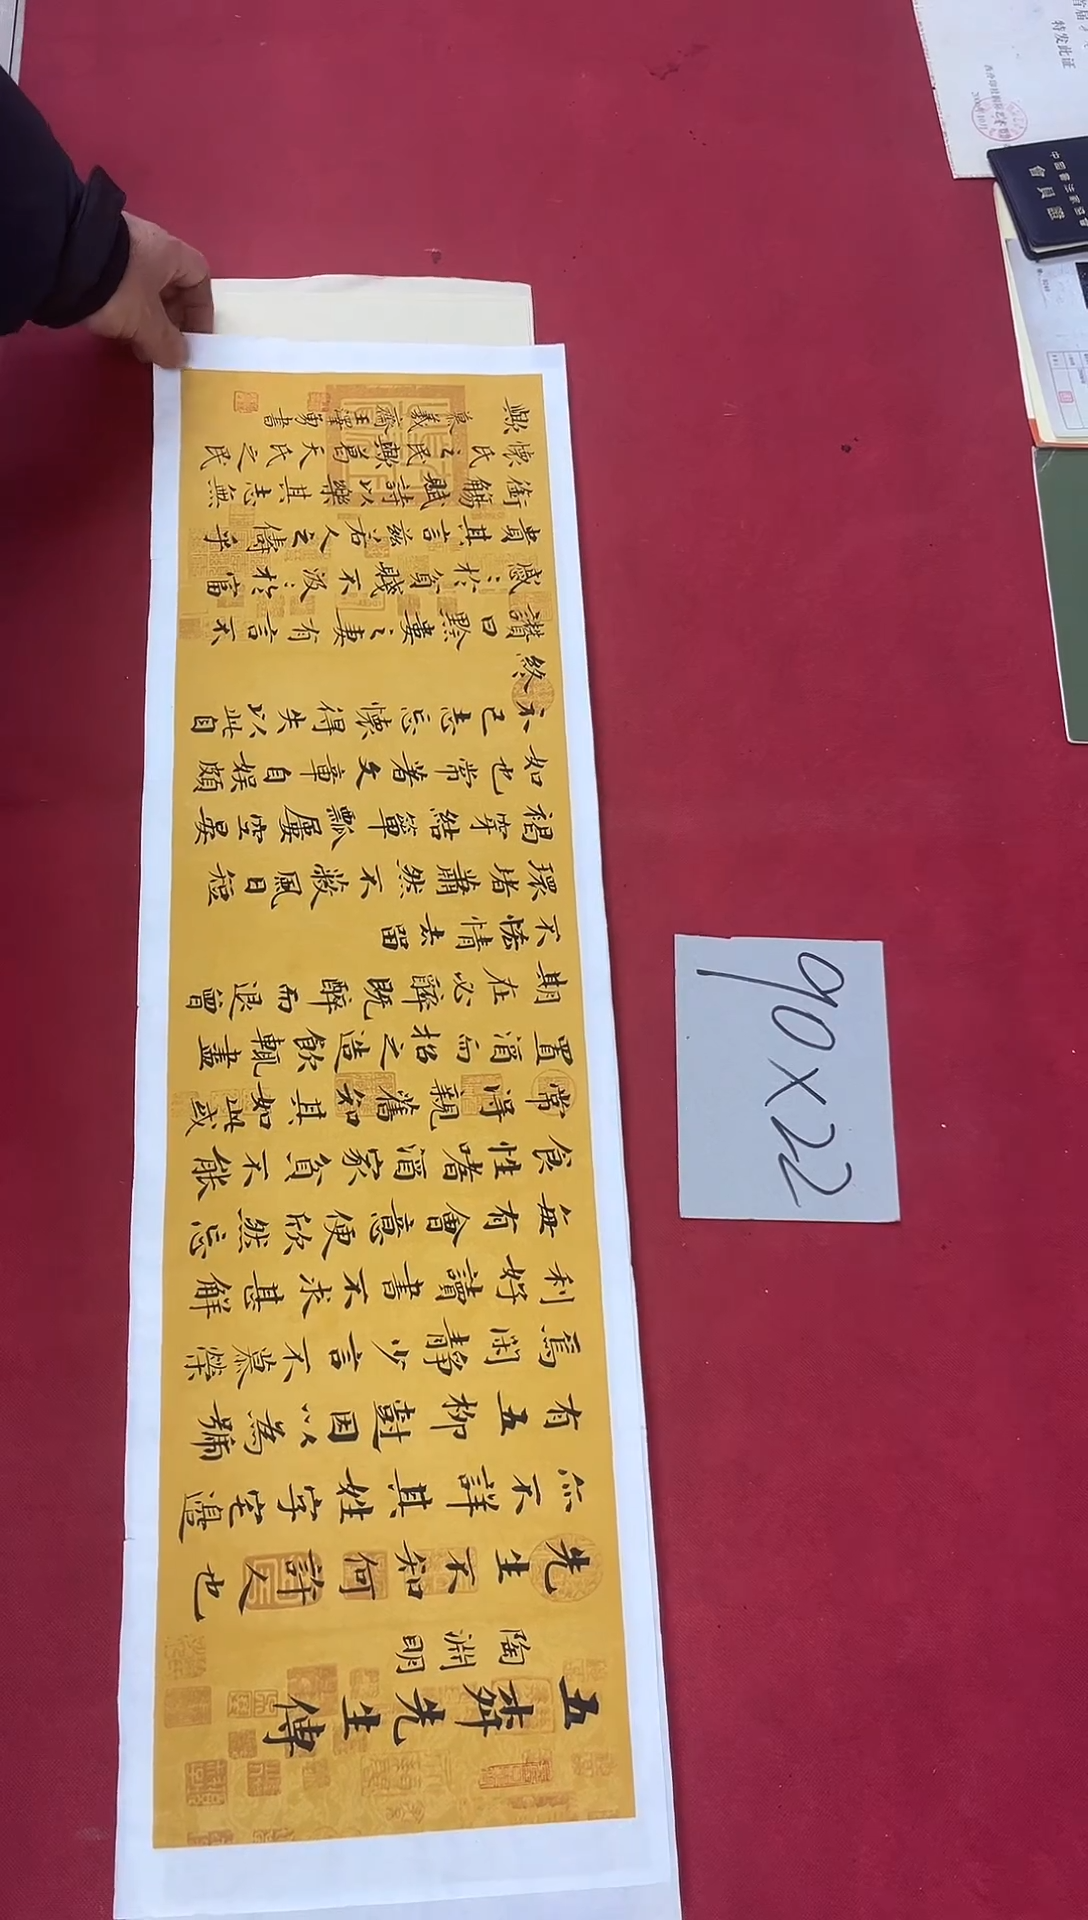 五桺先生傳
陶淵明
先生不知何許人也
亦不詳其姓字宅邊
有五柳樹因以為號
焉閑靜少言不慕榮
利好讀書不求甚解
每有會意便欣然忘
食性嗜酒家貧不能
常得親舊知其如此或
置酒而招之造飲輒盡
期在必醉既醉而退曾
不恡情去留
環堵蕭然不蔽風日短
褐穿結簞瓢屢空晏
如也常著文章自娛頗
示己志忘懷得失以此自
終
讚曰黔婁之妻有言不
慼〻於貧賤不汲〻於富
貴其言茲若人之儔乎
銜觴賦詩以樂其志無
懷氏之民歟葛天氏之民
歟
慕羲齋王澤勇書
90×22
特发此证
中國書法家協會
會員證